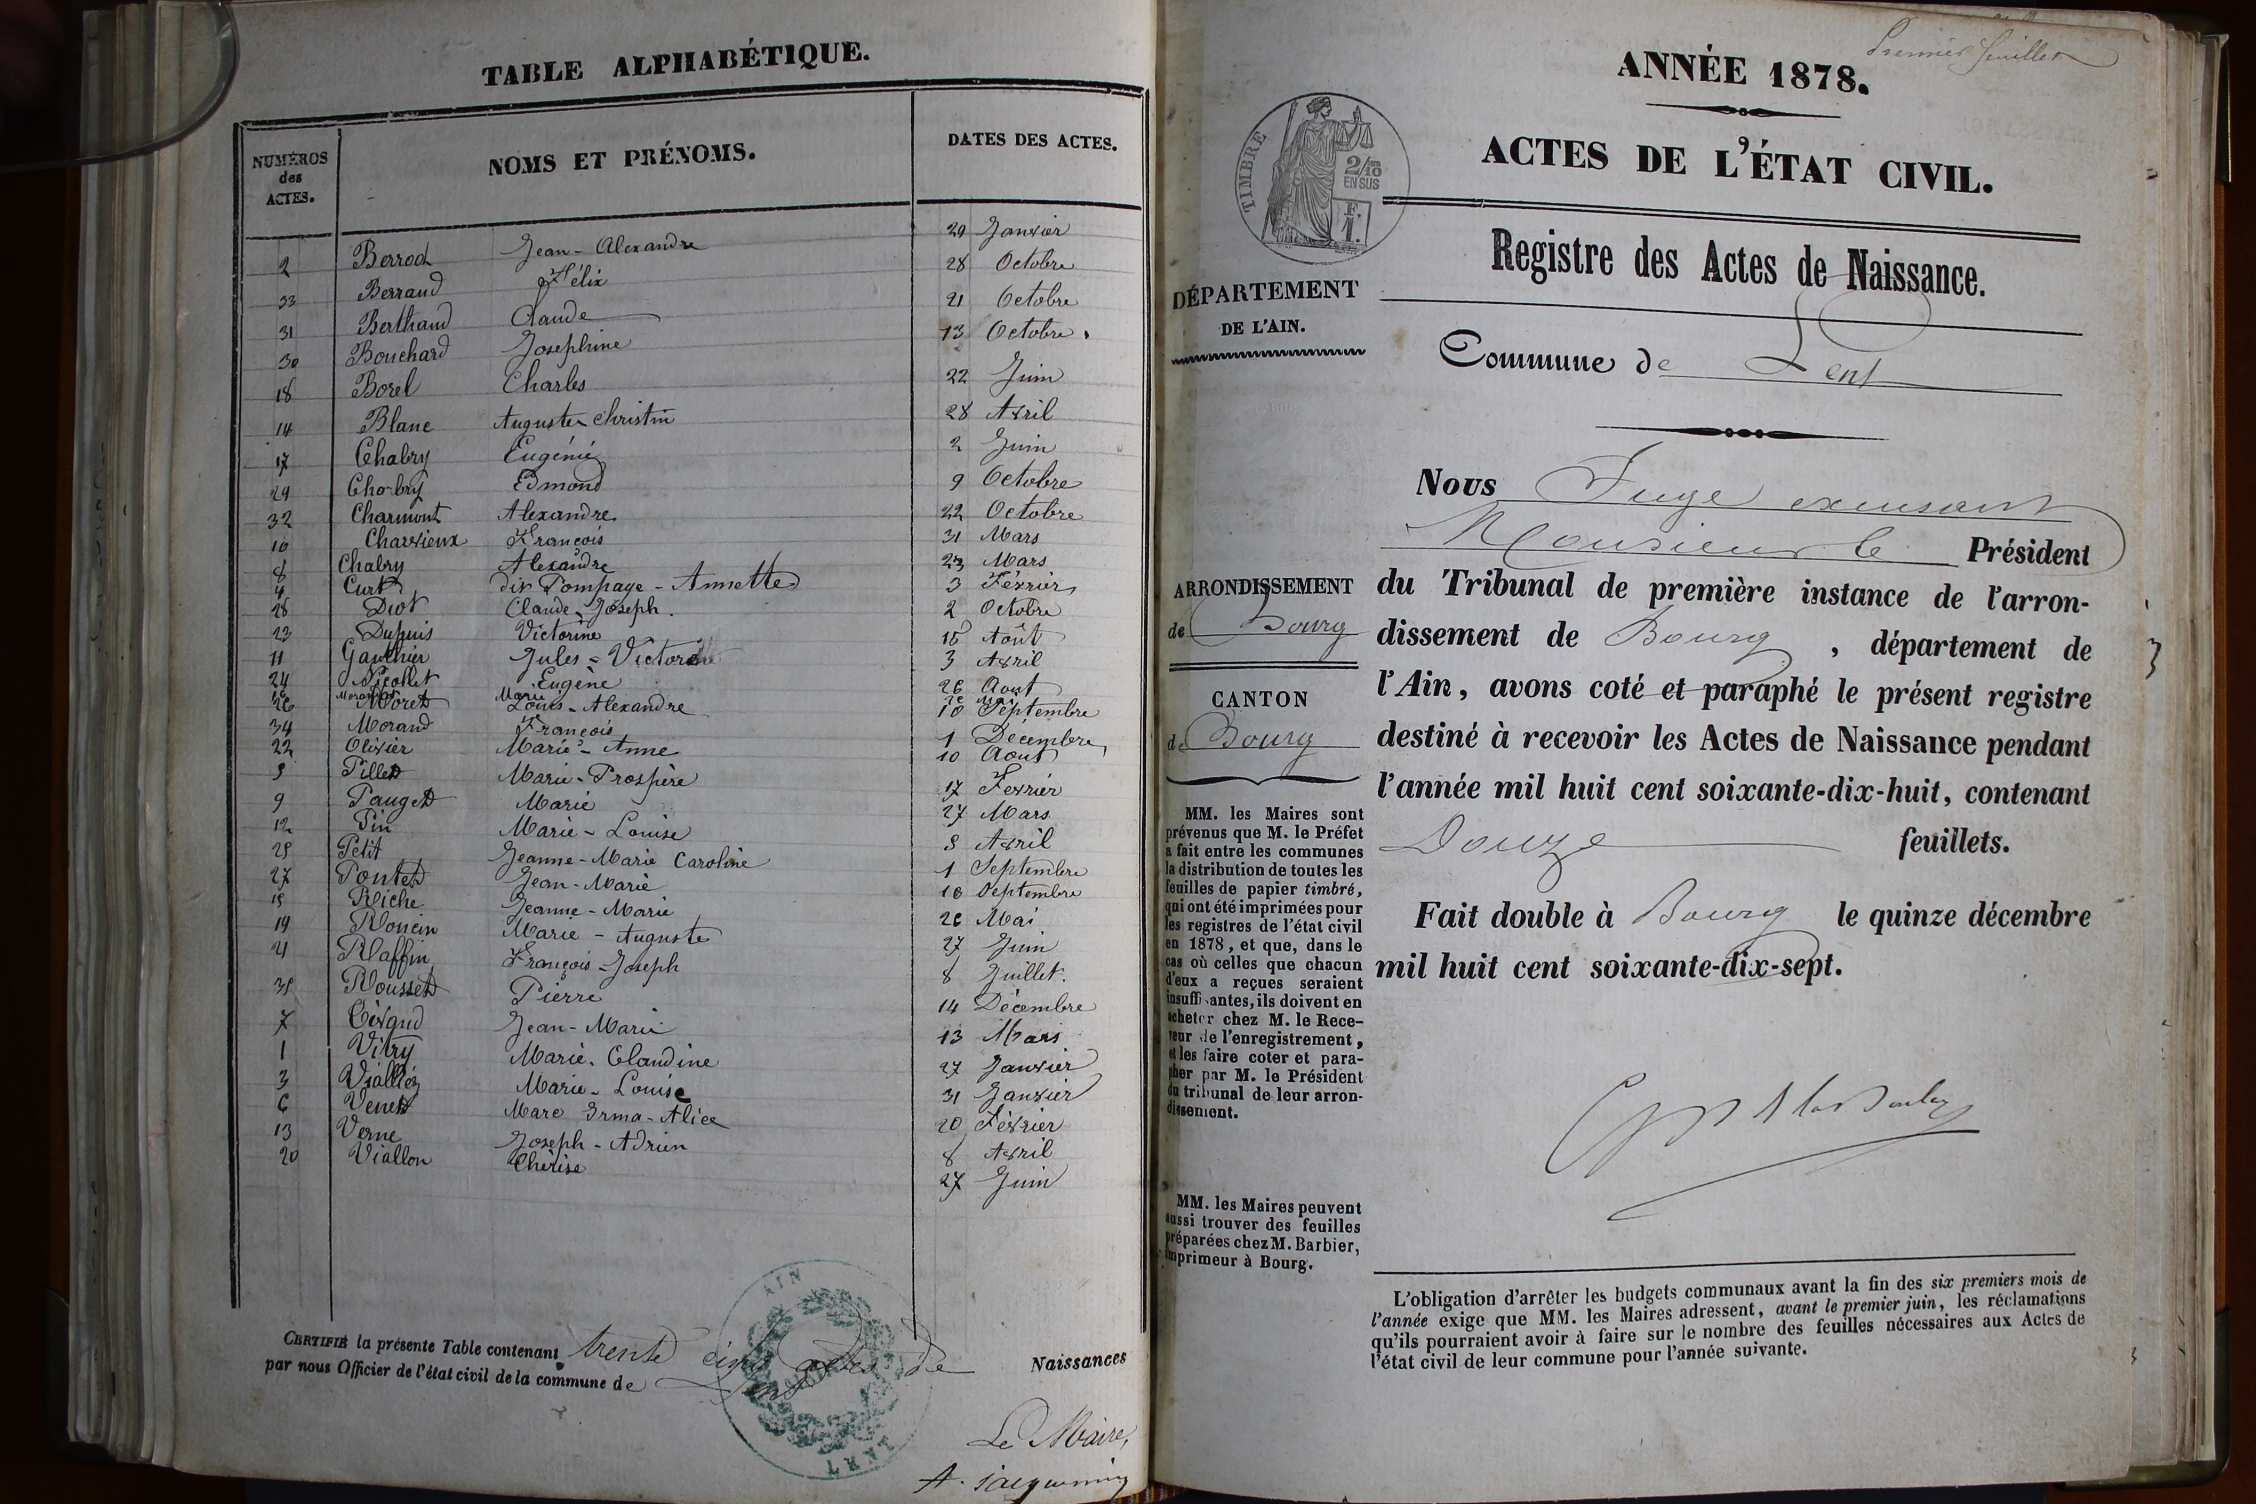 TABLE ALPHABÉTIQUE.
NUMÉROS des ACTES.
NOMS ET PRÉNOMS.
DATES DES ACTES.
2 Berrod Jean - Alexandre 29 Janvier
33 Berraud Félix 28 Octobre
31 Berthaud Claude 21 Octobre
30 Bouchard Josephine 13 Octobre
18 Borel Charles 22 Juin
14 Blanc Auguste Christin 28 Avril
17 Chabry Eugénie 2 Juin
29 Chabry Edmond 9 Octobre
32 Charmont Alexandre 22 Octobre
10 Charvieux François 31 Mars
8 Chabry Alexandre 23 Mars
4 Curt dit Pompage - Annette 3 Février
28 Diot Claude - Joseph. 2 Octobre
23 Dupuis Victorine 15 Août
11 Gauthier Jules - Victor 3 Avril
24 Nicollet Eugène 26 Aout
16 Morand Marie
26 Moret Louis - Alexandre 10 Septembre
34 Morand François 1 Décembre
22 Olivier Marie - Anne 10 Aout
5 Pillet Marie - Prospère 17 Fevrier
9 Pauget Marie 27 Mars
12 Pin Marie - Louise 5 Avril
25 Petit Jeanne - Marie Caroline 1 Septembre
27 Pontet Jean - Marie 16 Septembre
15 Riche Jeanne - Marie 26 Mai
19 Roncin Marie - Auguste 27 Juin
21 Raffin François - Joseph 8 Juillet.
35 Rousset Pierre 14 Décembre
7 Jean - Marie 13 Mars
1 Vitry Marie - Claudine 27 Janvier
3 Marie - Louise 31 Janvier
6 Venet Marc Irma - Alice 20 Février
13 Verne Joseph - Adrien 8 Avril
20 Viallon Chérise 27 Juin
CERTIFIÉ la présente Table contenant trente cinq actes de Naissances
par nous Officier de l'état civil de la commune de Lent
AIN
LENT
Le Maire,
A. Jacquemin
Premier feuillet
ANNÉE 1878.
ACTES DE L'ÉTAT CIVIL.
TIMBRE
2/10
EN SUS
F.
1.
Registre des Actes de Naissance.
DÉPARTEMENT
DE L'AIN.
Commune de Lent
Nous Juge excusant
Monsieur le Président
ARRONDISSEMENT
de Bourg
CANTON
de Bourg
du Tribunal de première instance de l'arron-
dissement de Bourg, département de
l'Ain, avons coté et paraphé le présent registre
destiné à recevoir les Actes de Naissance pendant
l'année mil huit cent soixante-dix-huit, contenant
Douze feuillets.
Fait double à Bourg le quinze décembre
mil huit cent soixante-dix-sept.
MM. les Maires sont
prévenus que M. le Préfet
a fait entre les communes
la distribution de toutes les
feuilles de papier timbré,
qui ont été imprimées pour
les registres de l'état civil
en 1878, et que, dans le
cas où celles que chacun
d'eux a reçues seraient
insuffisantes, ils doivent en
acheter chez M. le Rece-
veur de l'enregistrement,
et les faire coter et para-
pher par M. le Président
du tribunal de leur arron-
dissement.
MM. les Maires peuvent
aussi trouver des feuilles
préparées chez M. Barbier,
imprimeur à Bourg.
L'obligation d'arrêter les budgets communaux avant la fin des six premiers mois de
l'année exige que MM. les Maires adressent, avant le premier juin, les réclamations
qu'ils pourraient avoir à faire sur le nombre des feuilles nécessaires aux Actes de
l'état civil de leur commune pour l'année suivante.